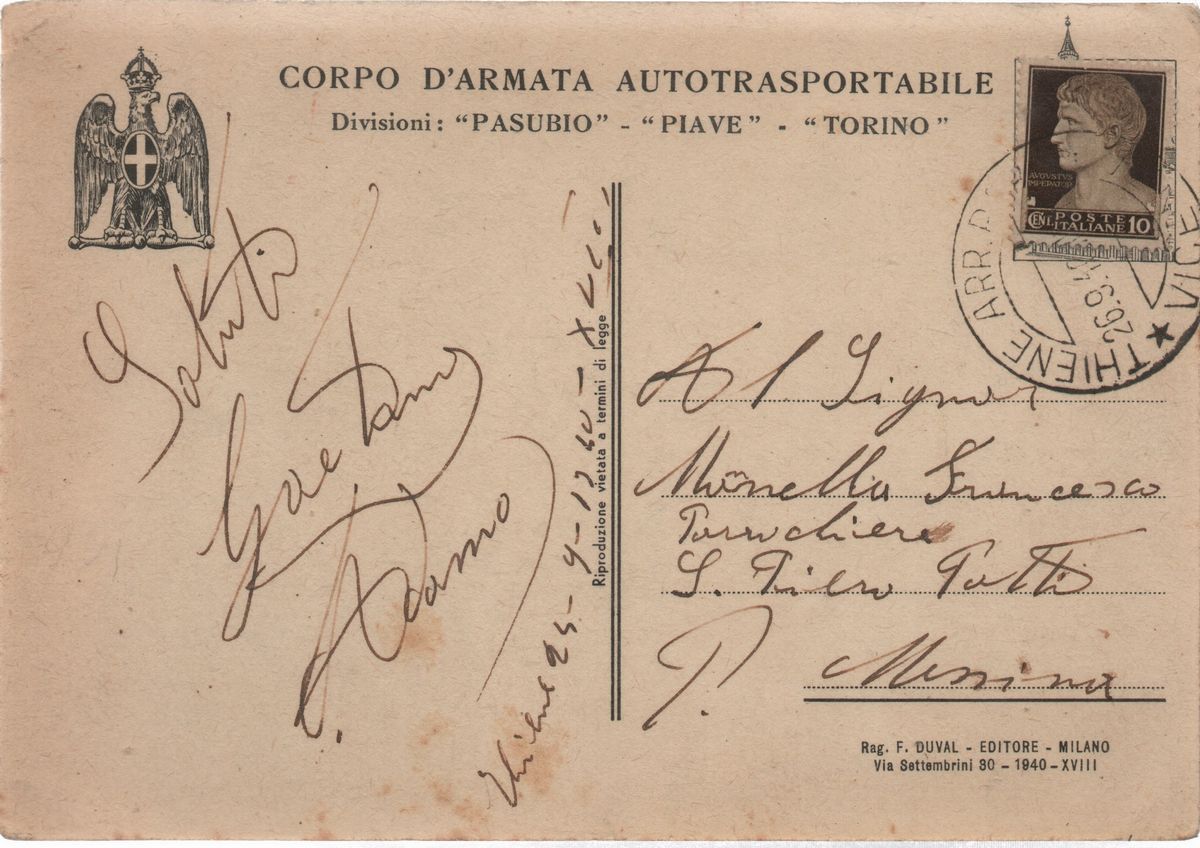 CORPO D'ARMATA AUTOTRASPORTABILE
Divisioni: "PASUBIO" - "PIAVE" - "TORINO"
AVGVSTVS
IMPERATOR
CENT. POSTE ITALIANE 10
THIENE ARR.
26.9.40
Saluti
Gaetano
Adamo
Thiene 25-9-1940-XVIII
Riproduzione vietata a termini di legge
Al Signor
Monella Francesco
Parrucchiere
S. Piero Patti
P. Messina
Rag. F. DUVAL - EDITORE - MILANO
Via Settembrini 30 - 1940-XVIII